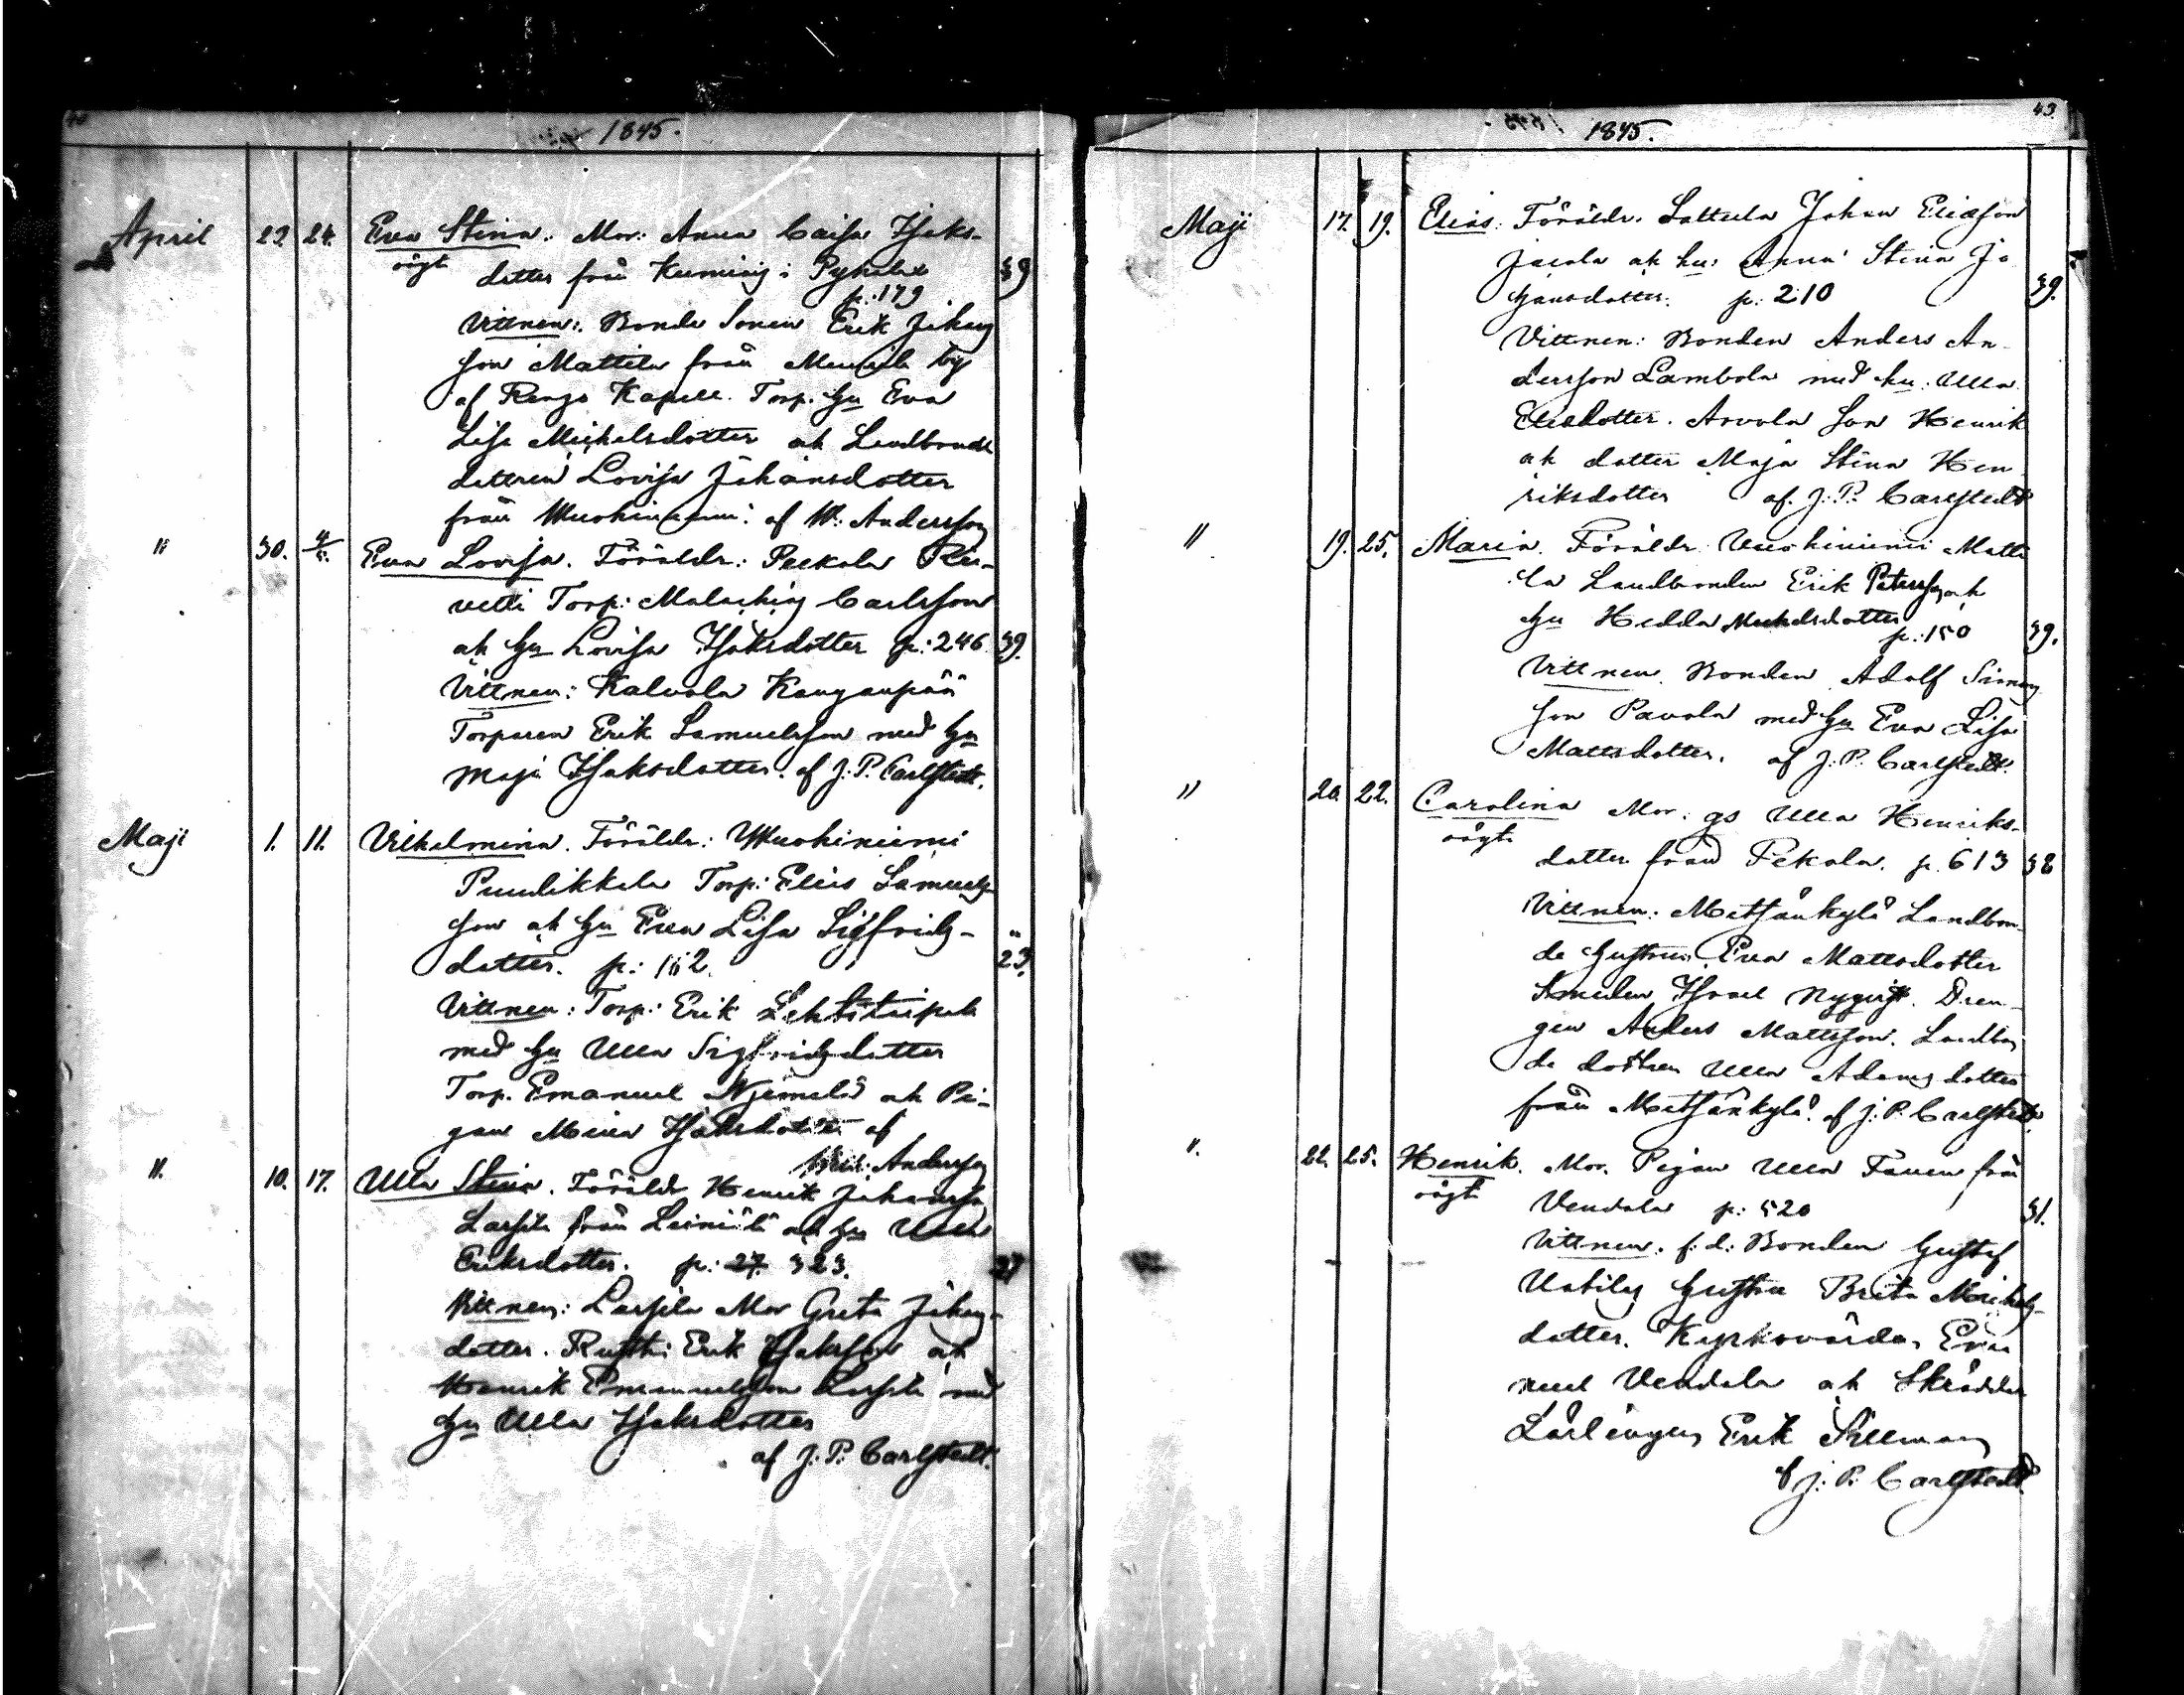 1845.
April 23. 24. Eva Stina. Mor: Anna Caisa Isaks-
oägt dotter från Kuming i 39
p: 179
Vittnen: Bonde Sonen Erik Johans
son Mattila från by
af Rengo Kapell. Torp. Hu Eva
Lisa Michelsdotter ok Landbonde
dottren Lovisa Johansdotter
från Wuohiniemi. af W. Andersson
" 30. 4/5. Eva Lovisa. Föräldr: Peckola
Torp: Malachias Carlsson
ok Hu Lovisa Isaksdotter p: 246 39.
Vittnen: Kalvola Kanganpää
Torparen Erik Samuelsson med Hu
Maja Isaksdotter. af J. P. Carlstedt.
Maji 1. 11. Vilhelmina. Föräldr: Wuohiniemi
Puulikkala Torp: Elias Samuels
son ok Hu Eva Lisa Sigfrids-
dotter. p: 23.
Vittnen: Torp: Erik
med Hu Ulla Sigfridsdotter
Torp. Emanuel ok Pi-
gan Mina Isaksdotter af
Andersson
". 10. 17. Ulla Stina. Föräldr Henrik Johansson
Larsila från ok Hu Ulla
Eriksdotter. p: 27. 323. 27
Vittnen: Larsila Mor Greta Johans-
dotter. Rusth: Erik Isaksson ok
Henrik Emanuelsson Larsila med
Hu Ulla Isaksdotter
af J. P. Carlstedt.
43
1845.
Maji 17. 19. Elias. Föräldr. Lattula Johan Eliasson
ok hu: Anna Stina Jo
hansdotter. p: 210 39.
Vittnen: Bonden Anders An-
dersson Lambola med hu: Ulla
Eliedotter. Arvola Son Henrik
ok dotter Maja Stina Hen
riksdotter af. J. P. Carlstedt
" 19. 25. Maria. Föräldr Wuohiniemi Matti
la Landbonden Erik Petersson ok
Hu Hedda Michelsdotter
p: 150 39.
Vittnen. Bonden Adolf Simons
son Pavola med Hu Eva Lisa
Mattsdotter. af J. P. Carlstedt.
" 20. 22. Carolina Mor: gs Ulla Henriks-
oägt
dotter från Pekola. p. 613 38
Vittnen: Metsänkylä Landbon-
de hustrun Eva Mattsdotter
Smeden Israel Nyqvist. Dren-
gen Anders Mattsson. Landbon
de dottren Ulla Adamsdotter
från Metsänkylä. af J. P. Carlstedt.
". 22. 25. Henrik. Mor. Pigan Ulla från
oägt Vendala p: 520 31.
Vittnen. f: d: Bonden Gustaf
Hustru Brita Michels-
dotter. Kyrkovärden Ema
nuel Vendala ok Skräddar
Lärlingen Erik
af J. P. Carlstedt.